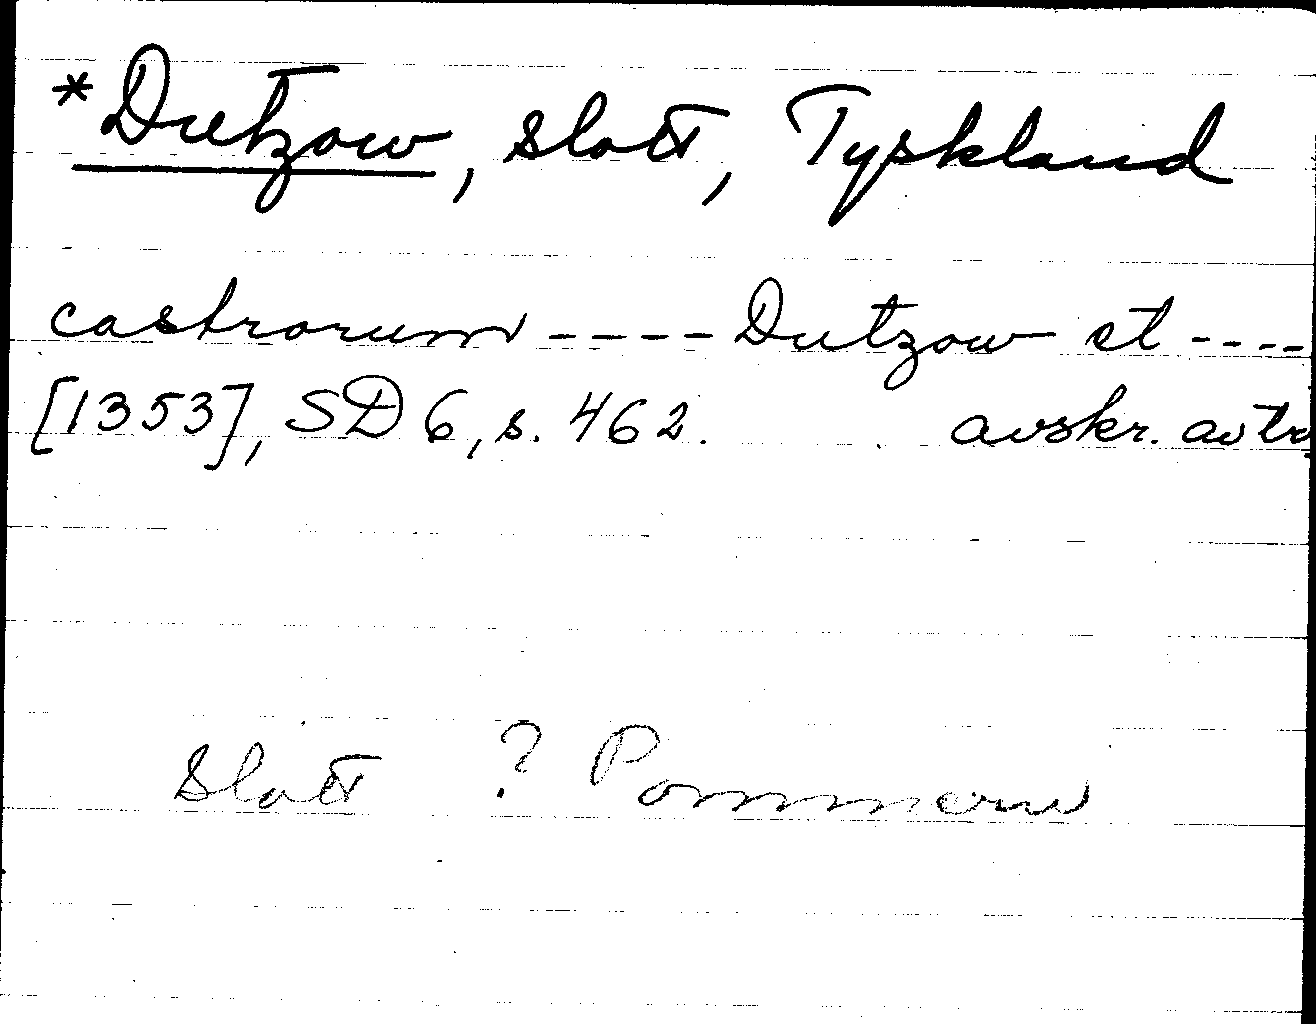 *Dutzow, slott, Tyskland
castrorum ---- Dutzow et ----
[1353], SD 6, s. 462. avskr. avtr
Slott ? Pommern